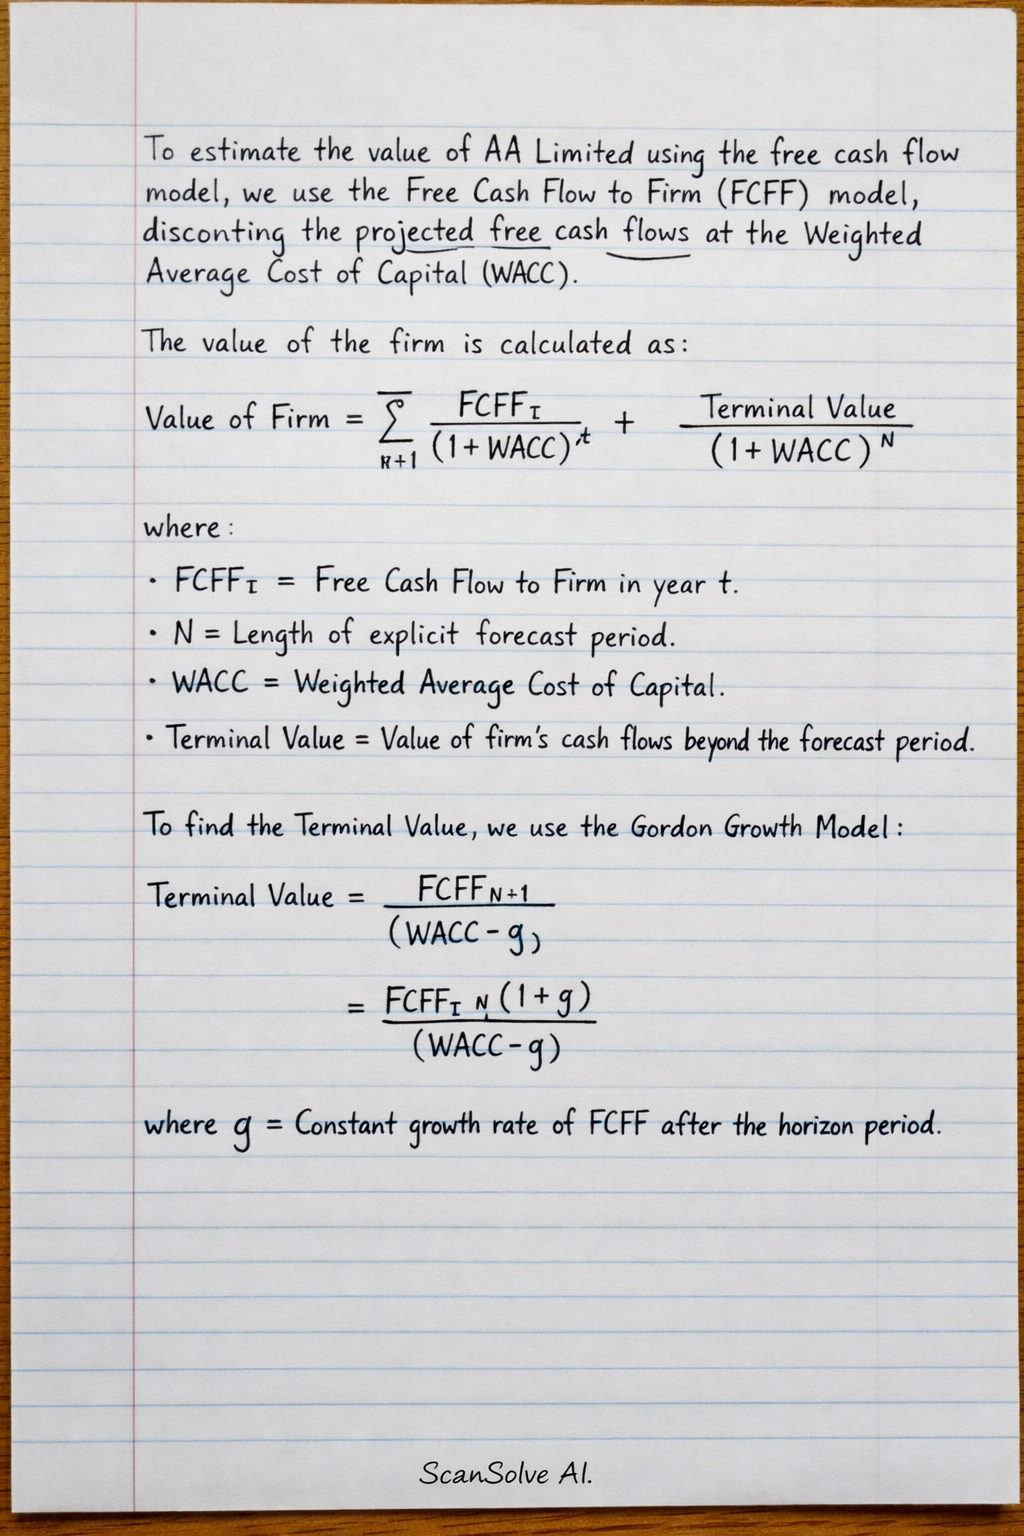 To estimate the value of AA Limited using the free cash flow
model, we use the Free Cash Flow to Firm (FCFF) model,
disconting the projected free cash flows at the Weighted
Average Cost of Capital (WACC).
The value of the firm is calculated as:
Value of Firm = ∑ N+1 FCFF_I / (1 + WACC)^t + Terminal Value / (1 + WACC)^N
where:
· FCFF_I = Free Cash Flow to Firm in year t.
· N = Length of explicit forecast period.
· WACC = Weighted Average Cost of Capital.
· Terminal Value = Value of firm's cash flows beyond the forecast period.
To find the Terminal Value, we use the Gordon Growth Model:
Terminal Value = FCFF_N+1 / (WACC - g)
= FCFF_I N (1 + g) / (WACC - g)
where g = Constant growth rate of FCFF after the horizon period.
ScanSolve AI.